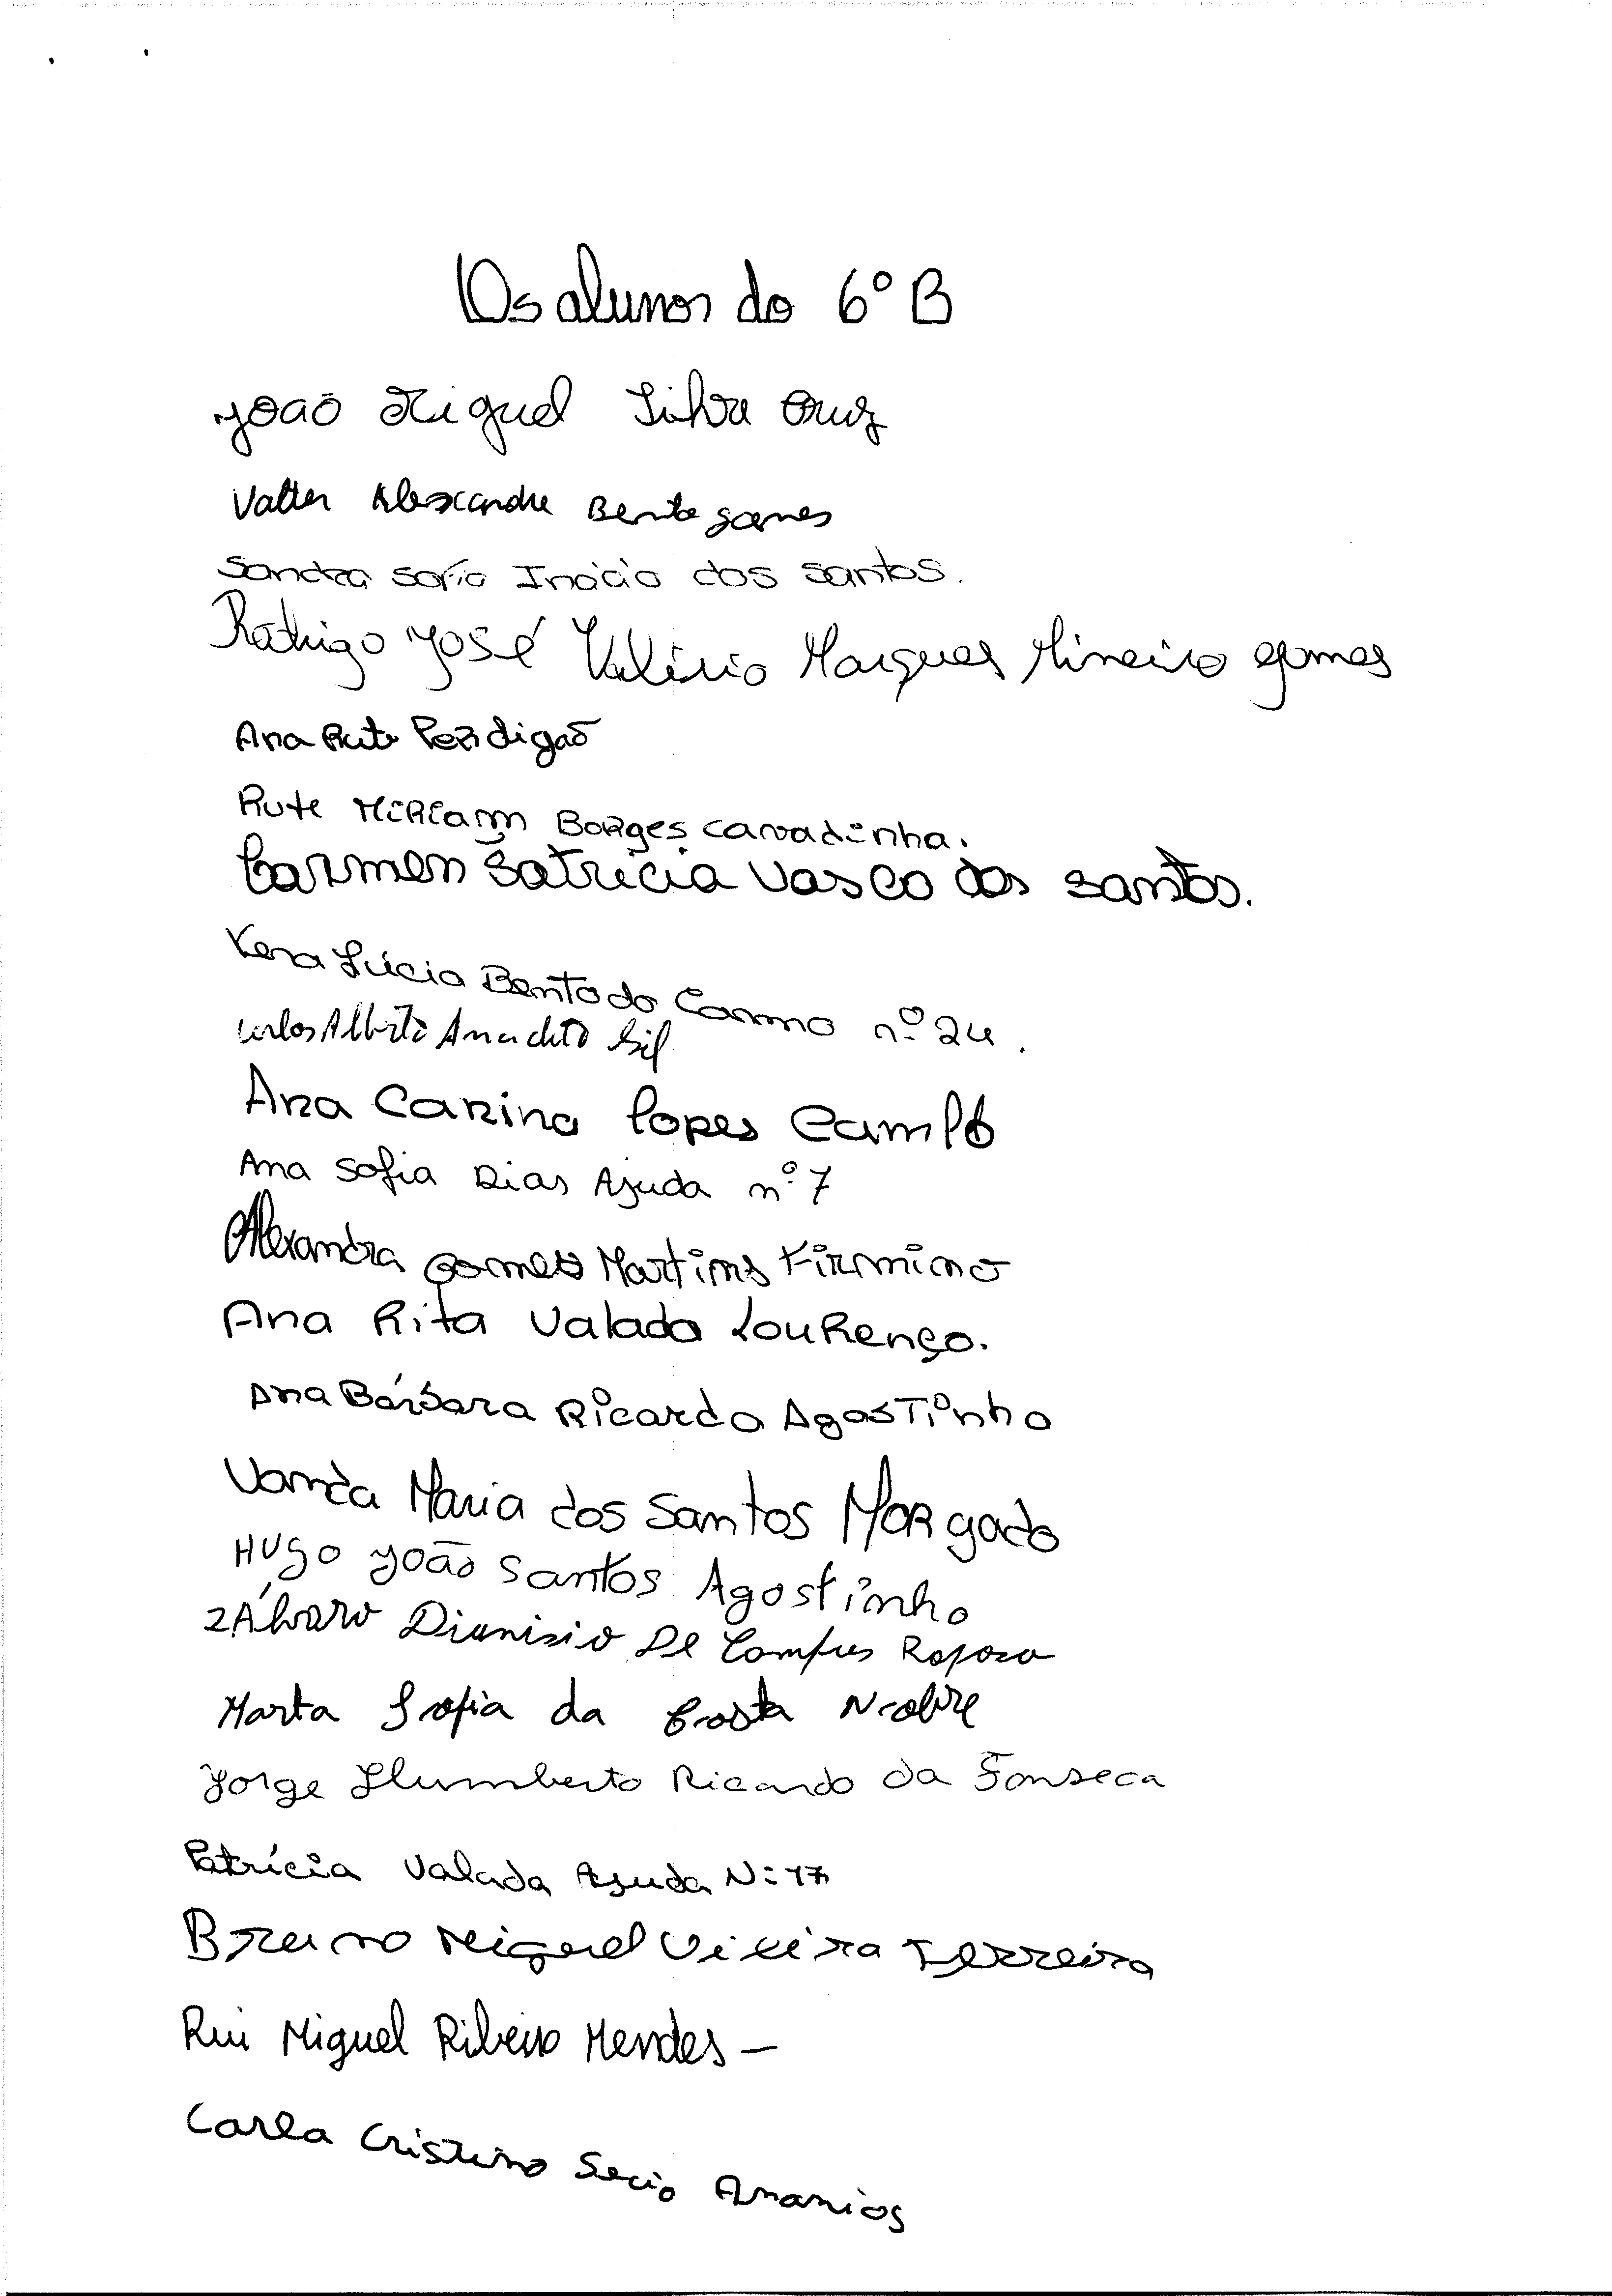 Os alunos do 6º B
João Miguel Silva Cruz
Valter Alexandre Bento gomes
Sandra Sofia Inácio dos santos.
Rodrigo José Valério Marques Mineiro gomes
Ana Rute Perdigão
Rute Miriam Borges Cavadinha.
Carmen Patrícia Vasco dos santos.
Vera Lúcia Bento do Carmo nº 24.
Carlos Alberto Anacleto Gil
Ana Carina Lopes Campos
Ana Sofia Dias Ajuda nº 7
Alexandra gomes Martins Firmino
Ana Rita Valada Lourenço.
Ana Bárbara Ricardo Agostinho
Vanda Maria dos Santos Morgado
Hugo João Santos Agostinho
Álvaro Dionisio De Campos Raposo
Marta Sofia da Costa Nobre
Jorge Humberto Ricardo da Fonseca
Patrícia Valada Ajuda Nº 17
Bruno Miguel Vieira Ferreira
Rui Miguel Ribeiro Mendes –
Carla Cristina Ananias